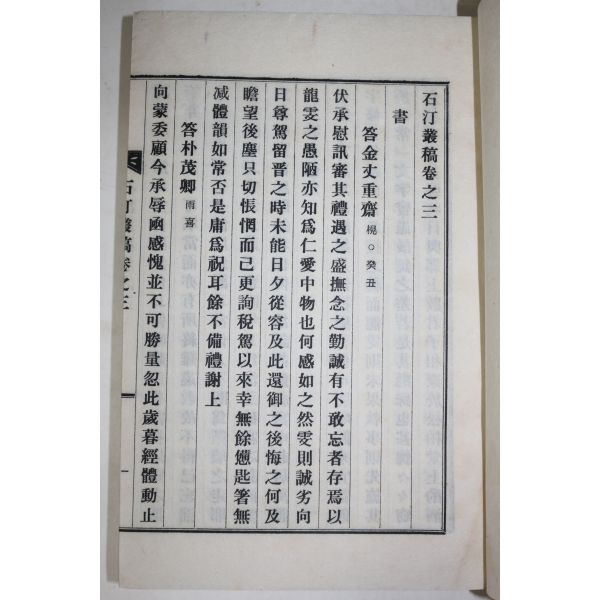 石汀叢稿卷之三
書
答金丈重齋 榥○癸丑
伏承慰訊審其禮遇之盛撫念之勤誠有不敢忘者存焉以
龍雯之愚陋亦知爲仁愛中物也何感如之然雯則誠劣向
日尊駕留晋之時未能日夕從容及此還御之後悔之何及
瞻望後塵只切悵惘而已更詢稅駕以來幸無餘憊匙箸無
减體韻如常否是庸爲祝耳餘不備禮謝上
答朴茂卿 雨喜
向蒙委顧今承辱函感愧並不可勝量忽此歲暮經體動止
石汀叢稿卷之三 一